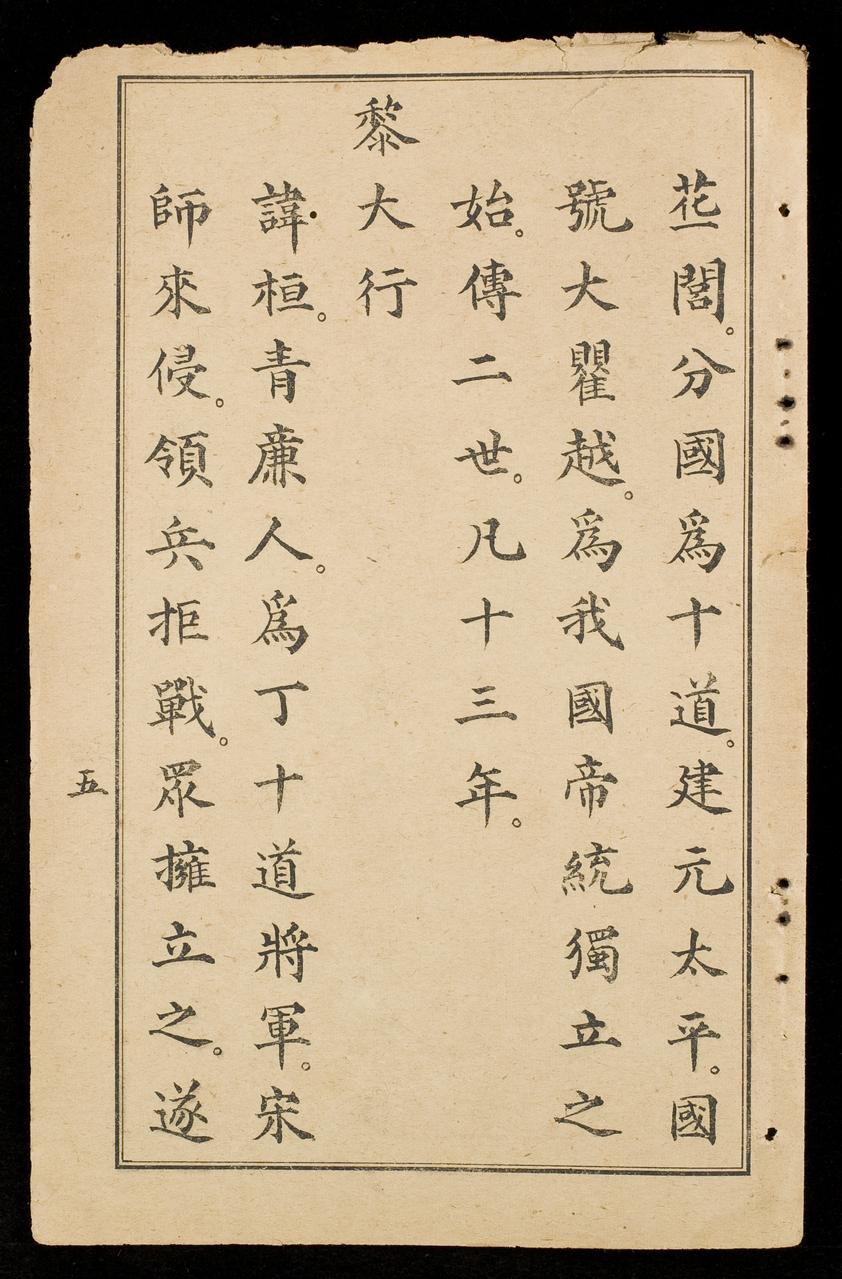 花閭。分國爲十道。建元太平。國
號大瞿越。爲我國帝統獨立之
始。傳二世。凡十三年。
黎大行
諱桓。青廉人。爲丁十道將軍。宋
師來侵。領兵拒戰。眾擁立之。遂
五